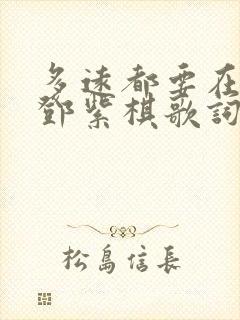 多遠都要在
鄧紫棋歌詞
松島信長